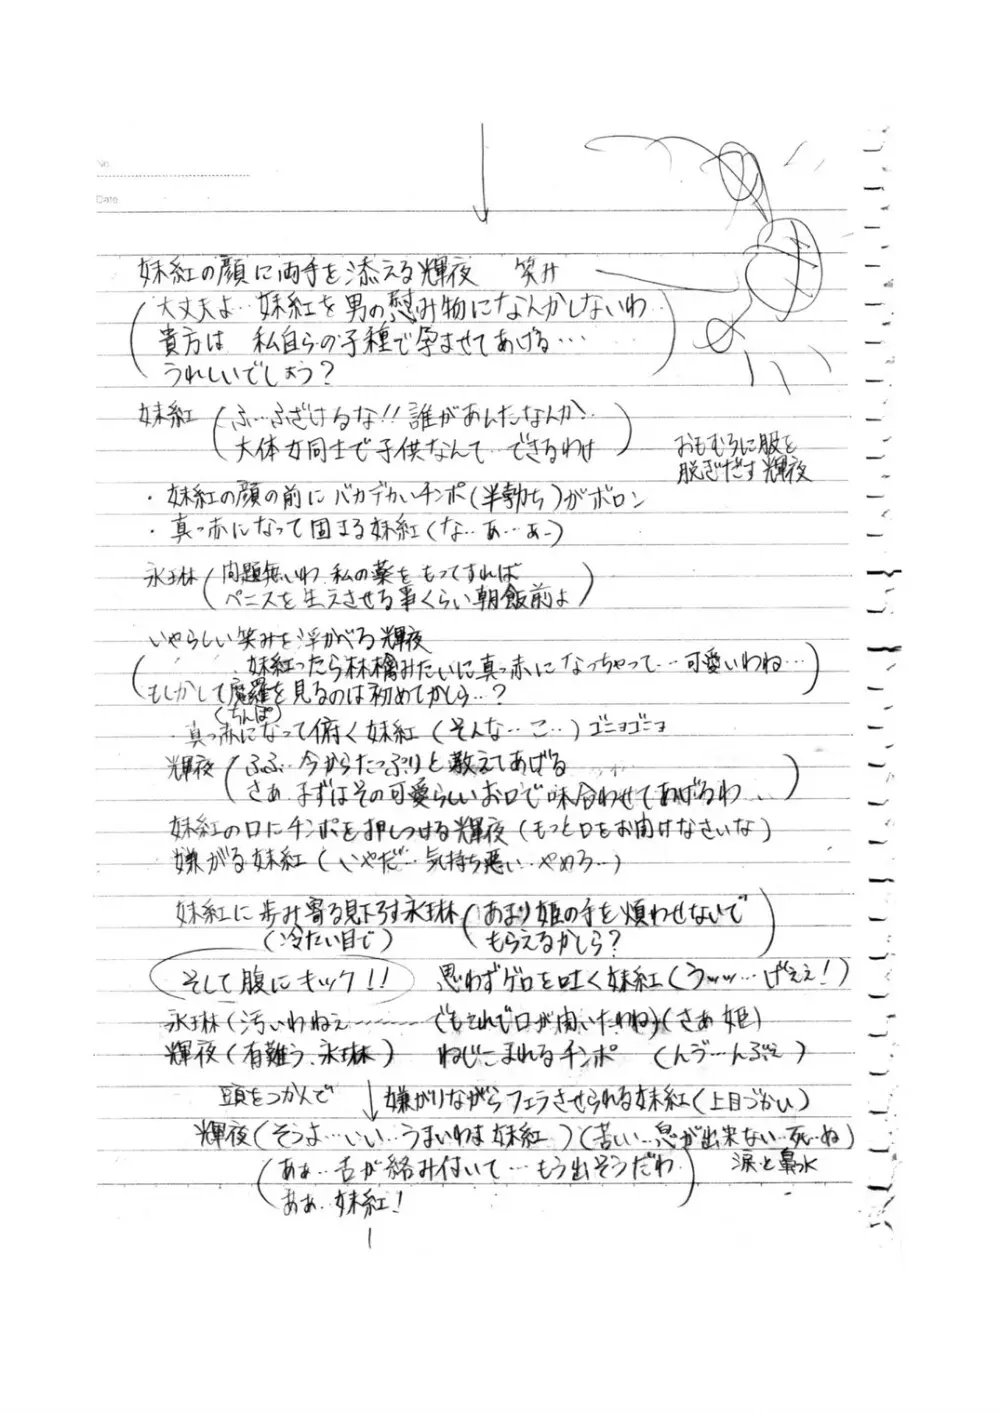 No.
Date
妹紅の顔に両手を添える輝夜 笑み
(大丈夫よ‥妹紅を男の慰み物になんかしないわ‥
貴方は 私自らの子種で孕ませてあげる…
うれしいでしょう?)
妹紅 (ふ…ふざけるな!!誰があんたなんか‥
大体女同士で子供なんて‥できるわけ)
おもむろに服を
脱ぎだす輝夜
・妹紅の顔の前にバカデカいチンポ(半勃ち)がボロン
・真っ赤になって固まる妹紅(な‥あ…あ-)
永琳(問題無いわ 私の薬をもってすれば
ペニスを生えさせる事くらい朝飯前よ)
いやらしい笑みを浮かべる輝夜
(妹紅ったら林檎みたいに真っ赤になっちゃって…可愛いわね…
もしかして魔羅を見るのは初めてかしら…?)
(ちんぽ)
・真っ赤になって俯く妹紅(そんな…こ‥)ゴニョゴニョ
輝夜(ふふ‥今からたっぷりと教えてあげる
さあ まずはその可愛らしいお口で味合わせてあげるわ‥)
妹紅の口にチンポを押しつける輝夜(もっと口をお開けなさいな)
嫌がる妹紅(いやだ‥気持ち悪い‥やめろ‥)
妹紅に歩み寄る見下ろす永琳(あまり姫の手を煩わせないで
(冷たい目で) もらえるかしら?)
そして腹にキック!! 思わずゲロを吐く妹紅(うッッ…げええ!)
永琳(汚いわねぇ……でもそれで口が開いたわね)(さあ姫)
輝夜(有難う、永琳) ねじこまれるチンポ (んう‥んぶぇ)
頭をつかんで ↓ 嫌がりながらフェラさせられる妹紅(上目づかい)
輝夜(そうよ…いい‥うまいわよ妹紅)(苦しい‥息が出来ない‥死‥ぬ)
(あぁ…舌が絡み付いて…もう出そうだわ 涙と鼻水
ああ‥妹紅!)